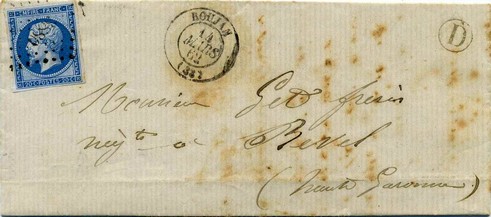 EMPIRE FRANC.
20 C. POSTES 20 C.
ROUJAN
14
MARS
62
(33)
D
Monsieur Ged frères
négt à Revel
(haute Garonne)